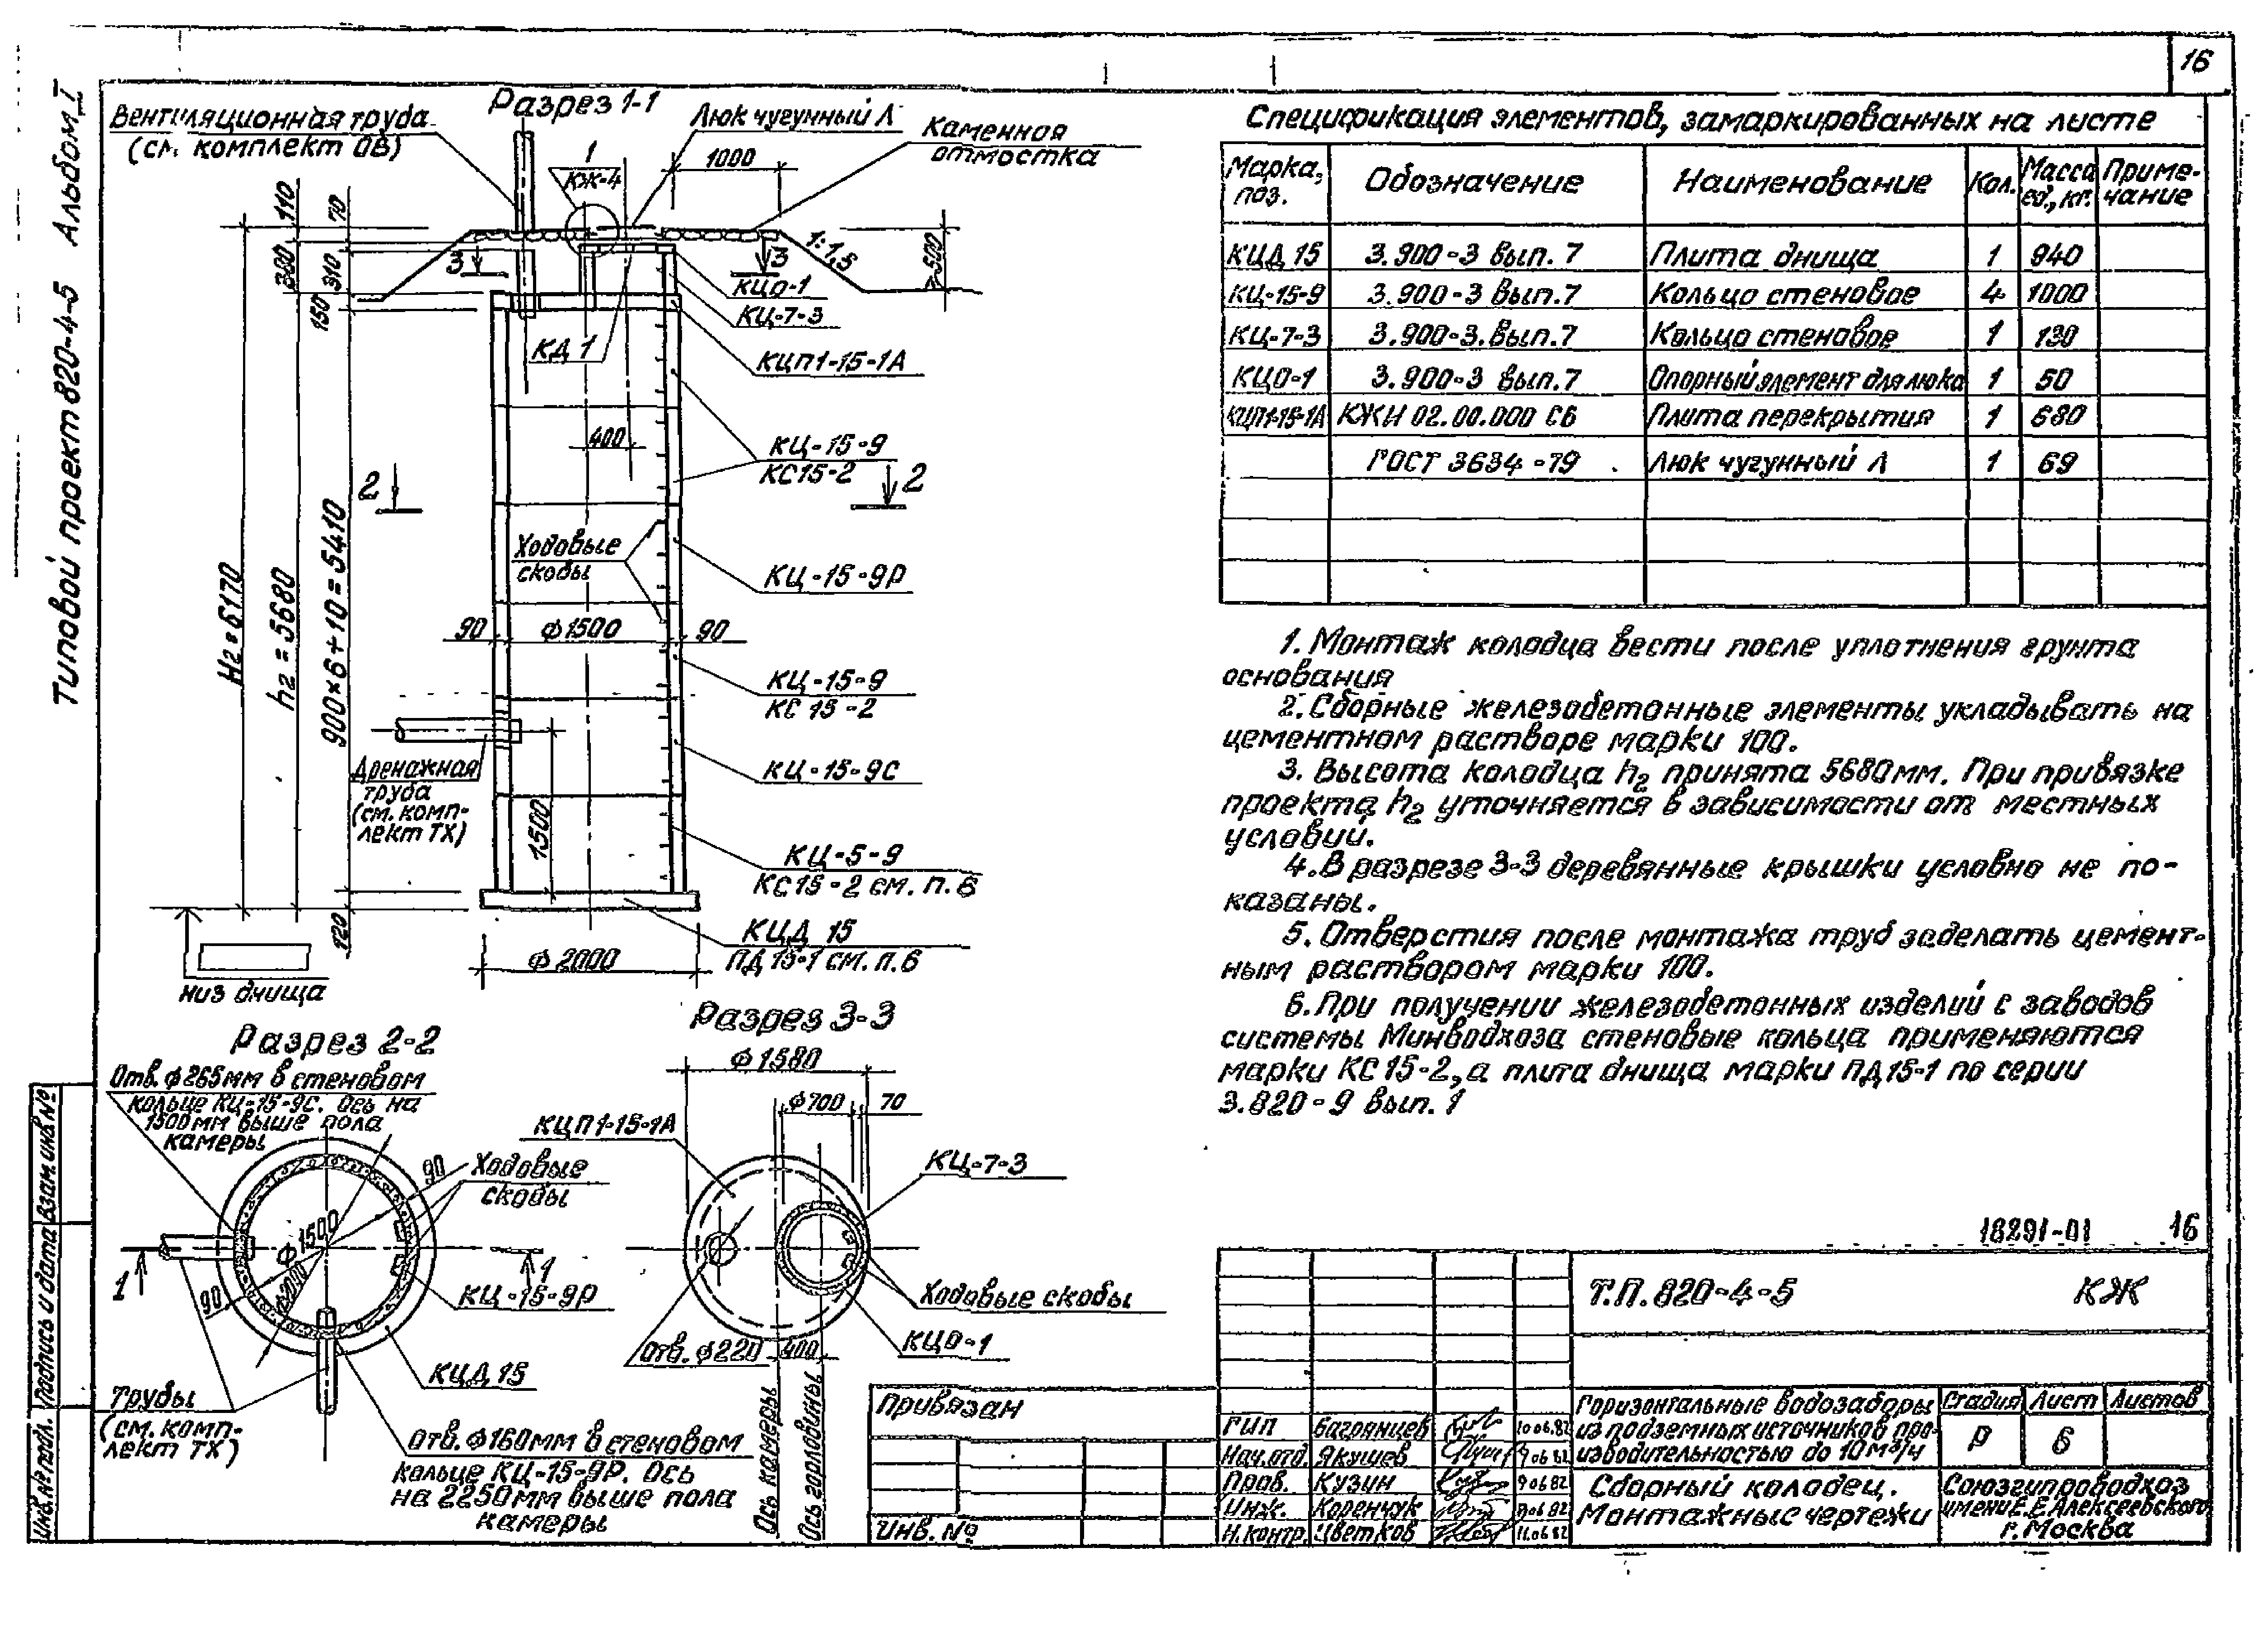 16
Типовой проект 820-4-5 Альбом I
Разрез 1-1
Вентиляционная труба
(см. комплект ОВ)
Люк чугунный Л
Каменная
отмостка
1
КЖ-4
1000
110
70
310
150
1:1,5
3
3
КЦО-1
КЦ-7-3
КД 1
КЦП1-15-1А
400
КЦ-15-9
КС15-2
2
2
Ходовые
скобы
КЦ-15-9Р
H2=6170
h2=5680
900×6+10=5410
90
ф1500
90
КЦ-15-9
КС 15-2
Дренажная
труба
(см. комп-
лект ТХ)
КЦ-15-9С
1500
КЦ-5-9
КС15-2 см. п. 6
120
КЦД 15
ПД 15-1 см. п. 6
ф 2000
низ днища
Разрез 2-2
Отв. ф265мм в стеновом
кольце КЦ-15-9С. Ось на
1500мм выше пола
камеры
90
Ходовые
скобы
ф1500
ф2000
90
1
1
КЦ-15-9Р
КЦД 15
Трубы
(см. комп-
лект ТХ)
Отв. ф160мм в стеновом
кольце КЦ-15-9Р. Ось
на 2250мм выше пола
камеры
Разрез 3-3
ф1580
ф700
70
КЦП1-15-1А
КЦ-7-3
Ходовые скобы
КЦО-1
Отв. ф220
400
Ось камеры
Ось горловины
Спецификация элементов, замаркированных на листе
Марка, поз. Обозначение Наименование Кол. Масса ед., кг. Приме-чание
КЦД 15 3.900-3 вып. 7 Плита днища 1 940
КЦ-15-9 3.900-3 вып.7 Кольцо стеновое 4 1000
КЦ-7-3 3.900-3. вып.7 Кольцо стеновое 1 130
КЦО-1 3.900-3 вып.7 Опорный элемент для люка 1 50
КЦП1-15-1А КЖИ 02.00.000 СБ Плита перекрытия 1 680
ГОСТ 3634-79 Люк чугунный Л 1 69
1. Монтаж колодца вести после уплотнения грунта
основания
2. Сборные железобетонные элементы укладывать на
цементном растворе марки 100.
3. Высота колодца h2 принята 5680мм. При привязке
проекта h2 уточняется в зависимости от местных
условий.
4. В разрезе 3-3 деревянные крышки условно не по-
казаны.
5. Отверстия после монтажа труб заделать цемент-
ным раствором марки 100.
6. При получении железобетонных изделий с заводов
системы Минводхоза стеновые кольца применяются
марки КС 15-2, а плита днища марки ПД15-1 по серии
3.820-9 вып. 1
18291-01 16
Т.П. 820-4-5 КЖ
Горизонтальные водозаборы
из подземных источников про-
изводительностью до 10м³/ч
Стадия Лист Листов
Р 6
Сборный колодец.
Монтажные чертежи
Союзгипроводхоз
имени Е.Е.Алексеевского
г. Москва
ГИП Багрянцев 10.06.82
Нач.отд. Якушев 9.06.82
Пров. Кузин 9.06.82
Инж. Коренчук 9.06.82
Н.контр. Цветков 11.06.82
Привязан
Инв. №
Взам. инв №
Подпись и дата
Инв. № подл.